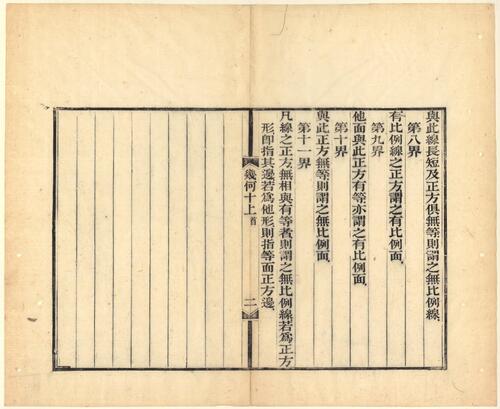 與此線長短及正方俱無等則謂之無比例線.
第八界
有比例線之正方謂之有比例面.
第九界
他面與此正方有等亦謂之有比例面.
第十界
與此正方無等則謂之無比例面.
第十一界
凡線之正方無相與有等者則謂之無比例線若爲正方
形卽指其邊若爲他形則指等面正方邊.
幾何十上 首
二